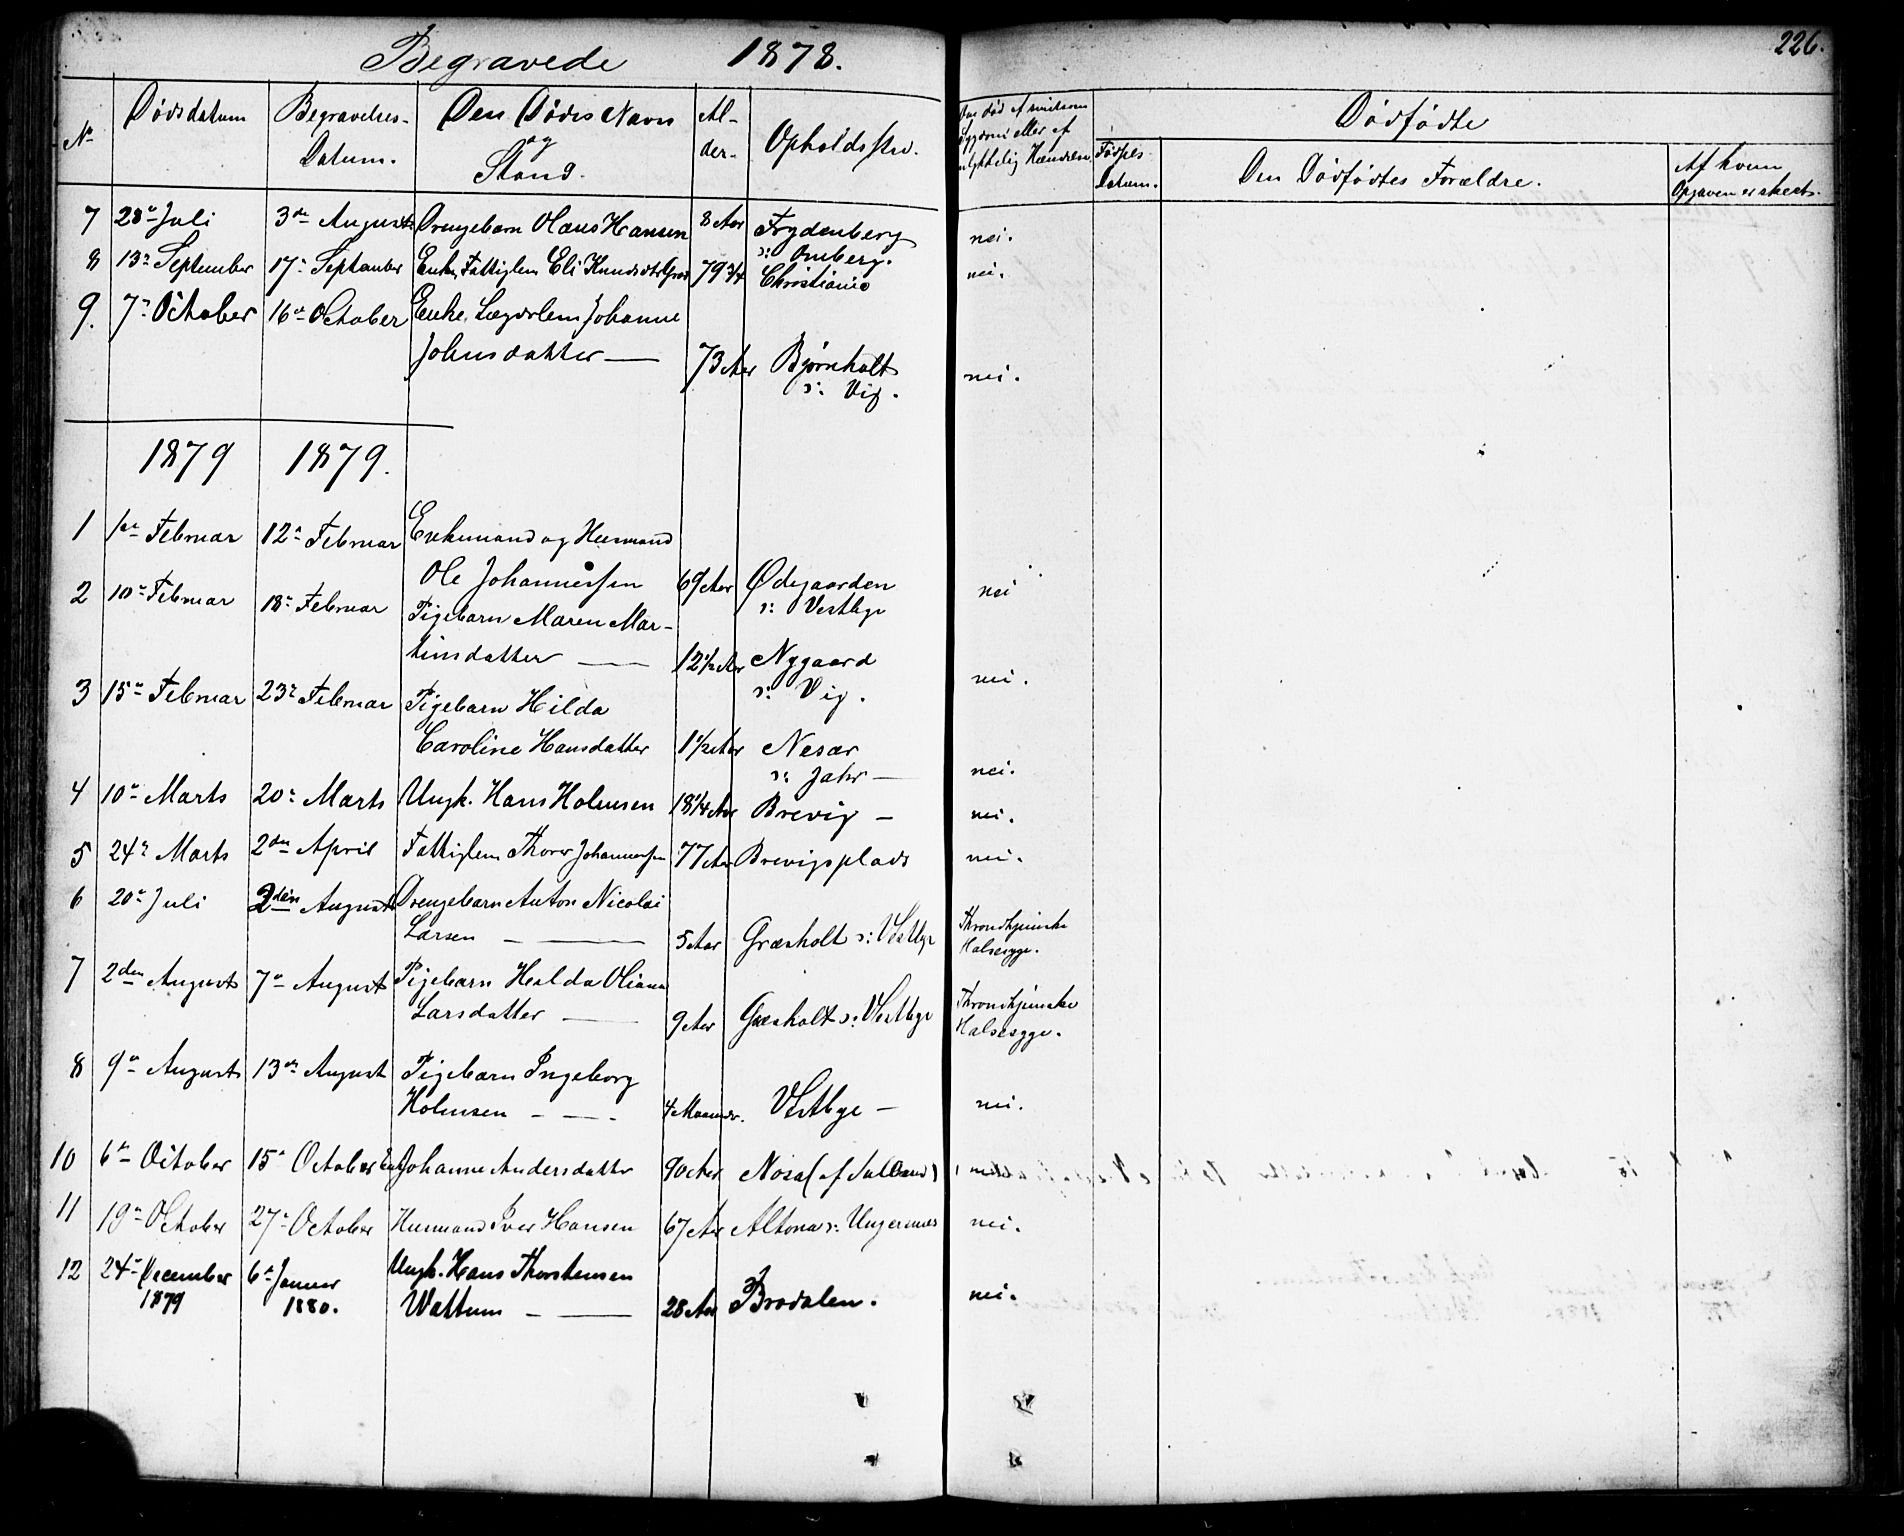 Begravede 1878.
226.
No Dødsdatum Begravelses- Datum. Den Dødes Navn og Stand. Al- der. Opholdssted. Om død af smitsom Sygdom eller af ulykkelig Hændelse. Dødfødte
Fødsels- Datum. Den Dødfødtes Forældre. Af hvem Opgaven er skeet.
7 28de Juli 3die August Drengebarn Olaus Hansen 8 Aar Frydenberg nei.
s: Omberg.
8 13de September 17de September Enke, Fattiglem Eli Knudsdtr 79 3/4 Christiania nei.
9. 7de October 16de October Enke, Lægdslem Johanne
Johnsdatter — 73 Aar Bjørnholt nei.
s: Vig.
1879 1879.
1 1ste Februar 12te Februar Enkemand og Huusmand
Ole Johannessen 69 Aar Ødegaarden nei
s: Vestbye
2 10de Februar 18de Februar Pigebarn Maren Mar-
tinsdatter — 12 1/2 Aar Nygaard nei.
s: Vig.
3 15de Februar 23de Februar Pigebarn Hilda
Caroline Hansdatter 1 1/2 Aar Nesar nei.
s: Jahr —
4 10de Marts 20de Marts Ungk. Hans Holmsen 18 1/4 Aar Brevig — nei.
5 24de Marts 2den April Fattiglem Thorer Johannessen 77 Aar Brevigsplads nei.
6 20de Juli 2den August Drengebarn Anton Nicolai
Larsen — — 5 Aar Græsholt s: Vestbye Throndhjemske
Halssyge.
7 2den August 7de August Pigebarn Hilda Oliana
Larsdatter — 9 Aar Græsholt s: Vestbye Throndhjemske
Halssyge.
8 9de August 13de August Pigebarn Ingeborg
Holmsen — — 4 Maaneder. Vestbye — nei.
10 6te October 15de October Enke Johanne Andersdatter 90 Aar Nosa (af nei
11 19de October 27de October Huusmand Iver Hansen 67 Aar Altona s: Ungersnes nei.
12 24de December 6te Januar Ungk. Hans Thorstensen
1879 1880. Wattum — — 28 Aar Bradalen. nei.